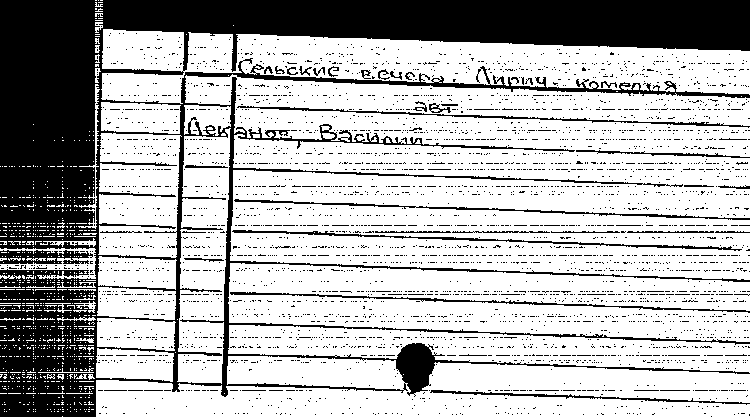 Сельские вечера. Лирич. комедия
авт.
Леканов, Василий.